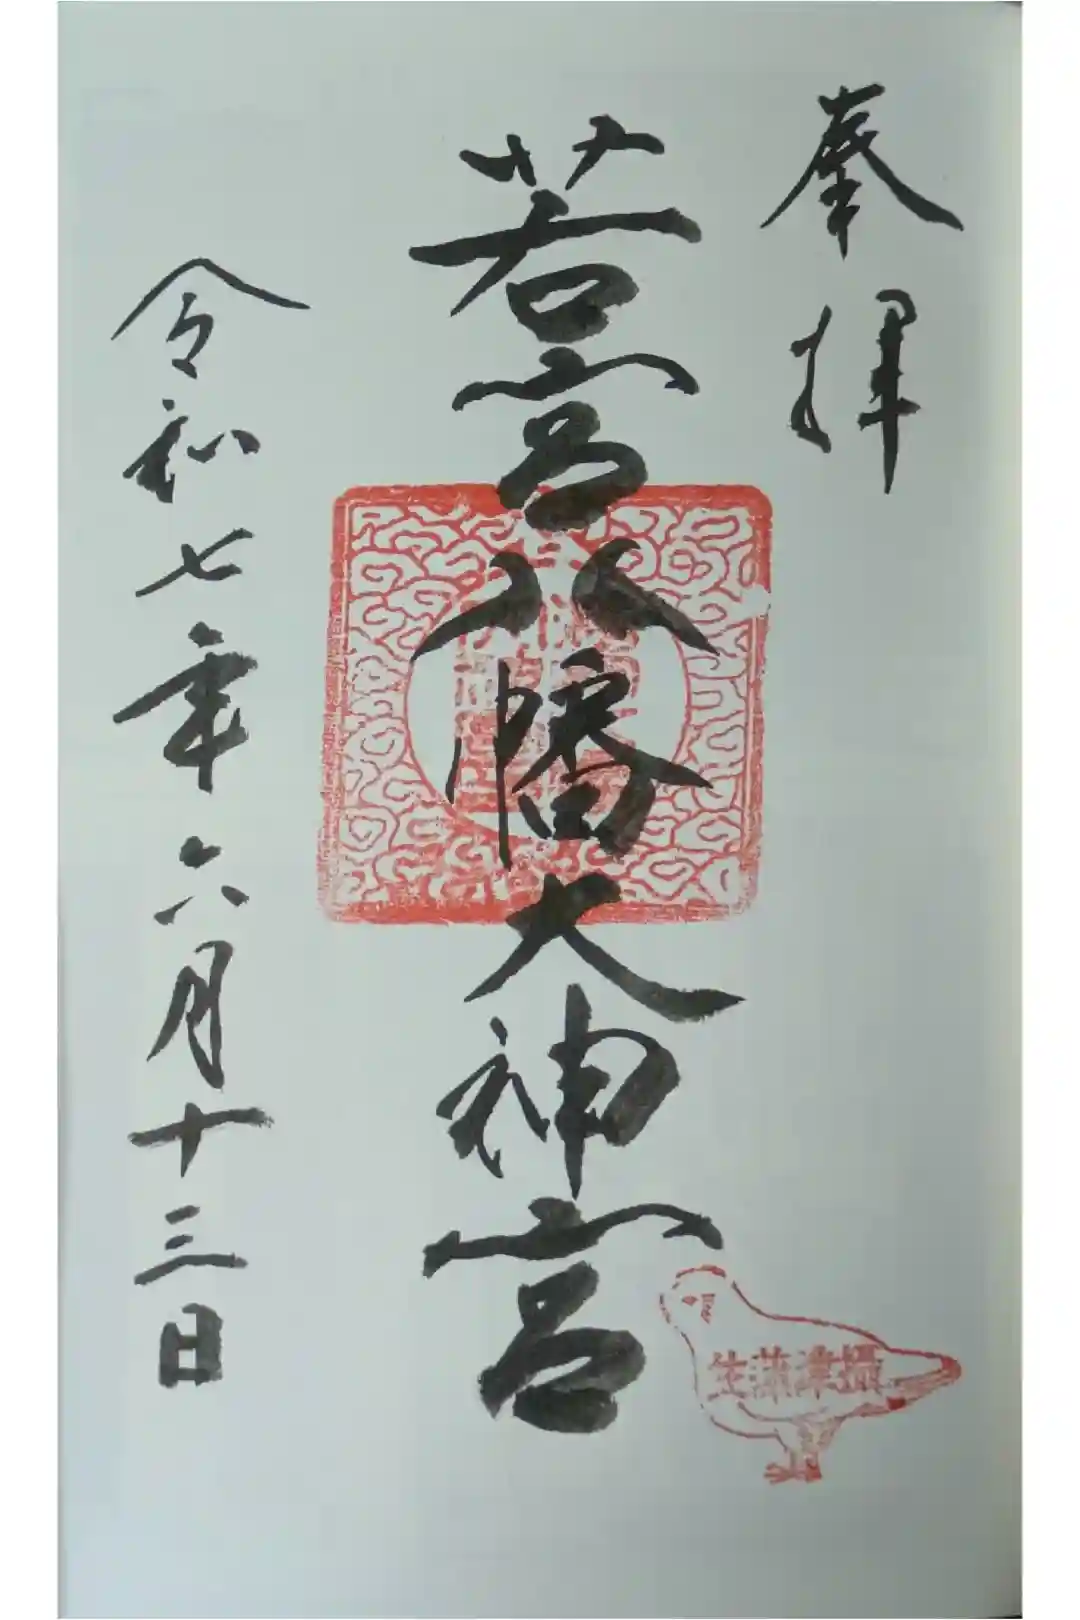 奉拝
若宮八幡大神宮
令和七年六月十三日
攝津蒲生